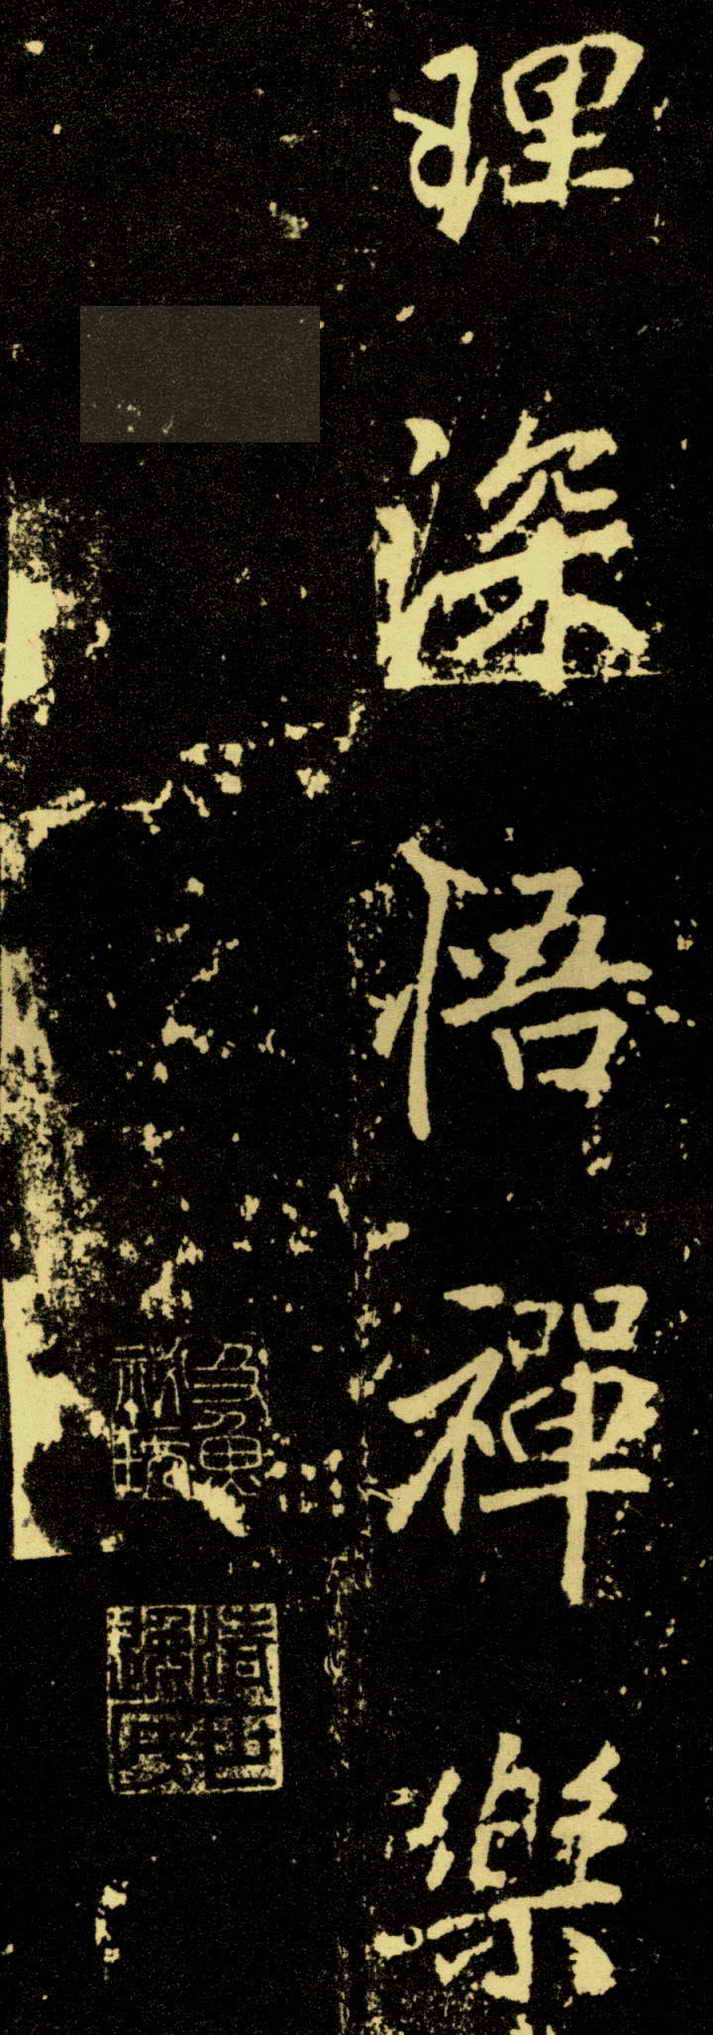 理深悟禪樂